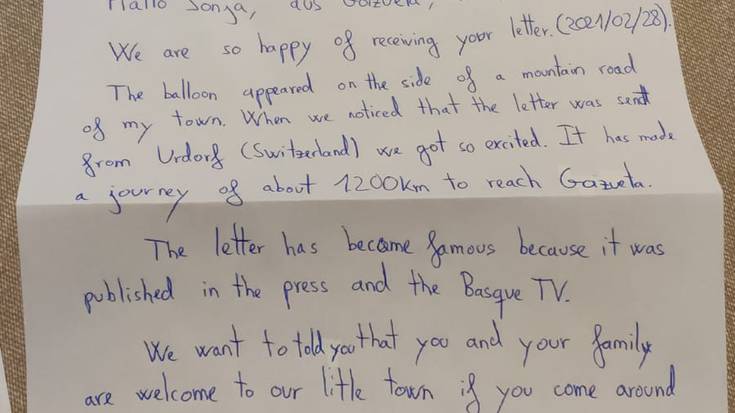 Hallo Sonja, aus Goizueta,
We are so happy of receiving your letter. (2021/02/28).
The balloon appeared on the side of a mountain road
of my town. When we noticed that the letter was sent
from Urdorf (Switzerland) we got so excited. It has made
a journey of about 1200km to reach Gazueta.
The letter has become famous because it was
published in the press and the Basque TV.
We want to told you that you and your family
are welcome to our little town if you come around